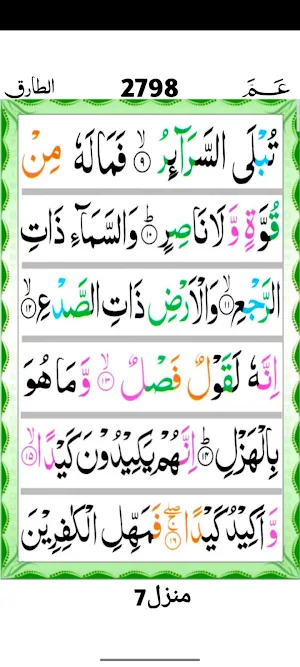 الطارق 2798 عَـمَّ
تُبْلَى السَّرَآئِرُ ۙ﴿۹﴾ فَمَا لَهٗ مِنْ
قُوَّةٍ وَّ لَا نَاصِرٍ ؕ﴿۱۰﴾ وَالسَّمَآءِ ذَاتِ
الرَّجْعِ ۙ﴿۱۱﴾ وَالْاَرْضِ ذَاتِ الصَّدْعِ ۙ﴿۱۲﴾
اِنَّهٗ لَقَوْلٌ فَصْلٌ ۙ﴿۱۳﴾ وَّ مَا هُوَ
بِالْهَزْلِ ؕ﴿۱۴﴾ اِنَّهُمْ يَكِيْدُوْنَ كَيْدًا ۙ﴿۱۵﴾
وَّ اَكِيْدُ كَيْدًا ۚۖ﴿۱۶﴾ فَمَهِّلِ الْكٰفِرِيْنَ
منزل7